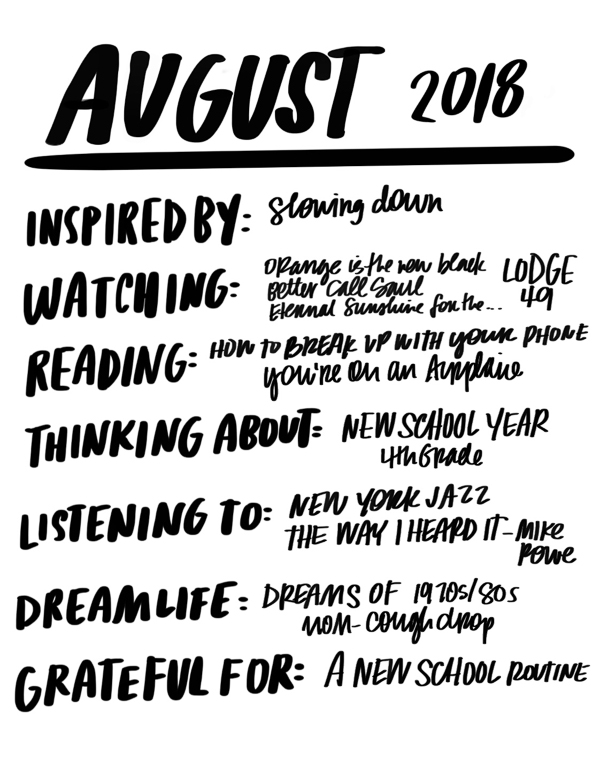 AUGUST 2018
INSPIRED BY: Slowing down
WATCHING: ORange is the new black LODGE
Better Call Saul 49
Eternal Sunshine for the...
READING: HOW TO BREAK UP WITH YOUR PHONE
You're On an Airplane
THINKING ABOUT: NEW SCHOOL YEAR
4th Grade
LISTENING TO: NEW YORK JAZZ
THE WAY I HEARD IT - MIKE
ROWE
DREAM LIFE: DREAMS OF 1970s/80s
MOM - cough drop
GRATEFUL FOR: A NEW SCHOOL ROUTINE